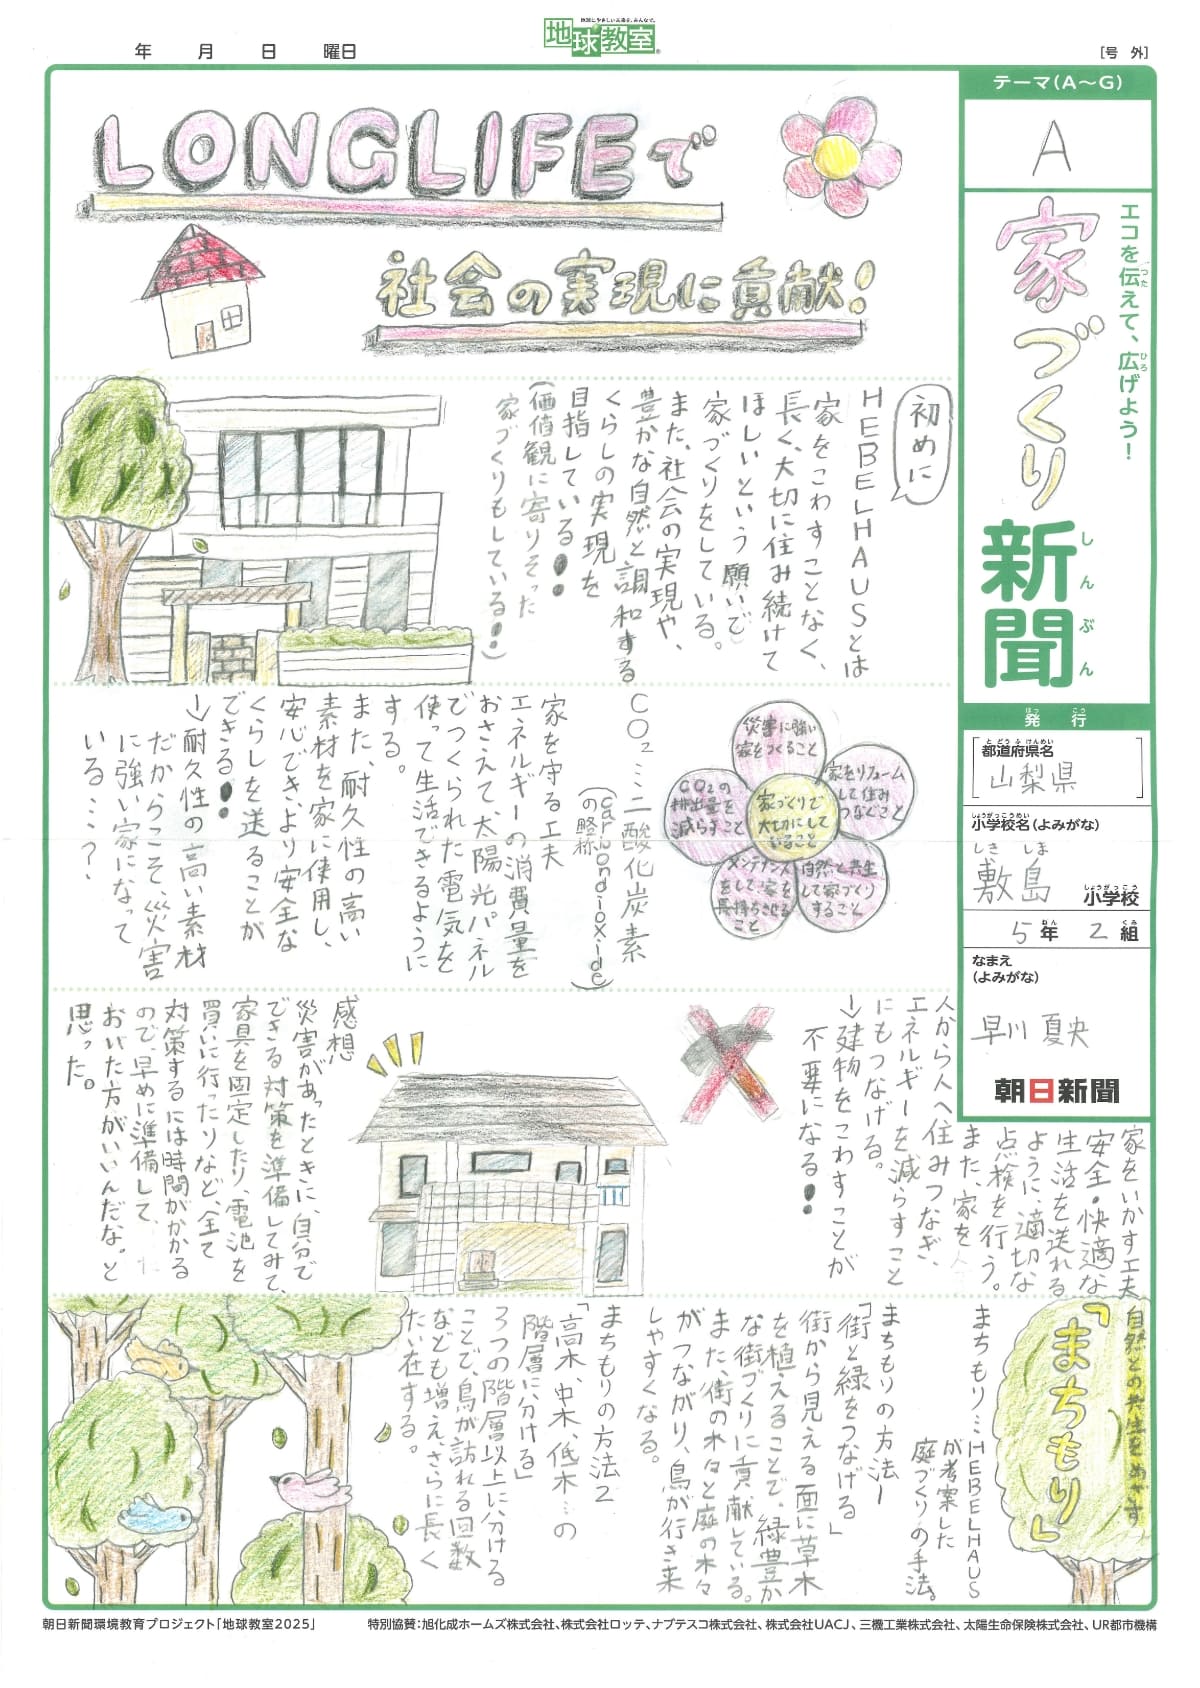 地球にやさしい未来を、みんなで。
地球教室
年　月　日　曜日
[号 外]
テーマ(A〜G)
A
エコを伝えて、広げよう!
つた
ひろ
家づくり
新聞
しんぶん
発行
はっ こう
都道府県名
と どう ふ けんめい
山梨県
小学校名(よみがな)
しょうがっこうめい
しき しま
敷島
小学校
しょうがっこう
5年 2組
ねん くみ
なまえ
(よみがな)
早川 夏央
朝日新聞
LONGLIFEで
社会の実現に貢献!
初めに
HEBELHAUSとは
家をこわすことなく、
長く、大切に住み続けて
ほしいという願いで
家づくりをしている。
また、社会の実現や、
豊かな自然と調和する
くらしの実現を
目指している!!
(価値観に寄りそった
家づくりもしている!!)
災害に強い
家をつくること
家をリフォーム
して住み
つなぐこと
自然と共生
して家づくり
すること
メンテナンス
をして、家を
長持ちさせる
こと
CO₂の
排出量を
減らすこと
家づくりで
大切にして
いること
CO₂…二酸化炭素
(carbondioxide)
の略
家を守る工夫
エネルギーの消費量を
おさえて、太陽光パネル
でつくられた電気を
使って生活できるように
する。
また、耐久性の高い
素材を家に使用し、
安心でき、より安全な
くらしを送ることが
できる!!
→耐久性の高い素材
だからこそ、災害
に強い家になって
いる…?
家をいかす工夫
安全・快適な
生活を送れる
ように、適切な
点検を行う。
また、家を
人から人へ住みつなぎ、
エネルギーを減らすこと
にもつなげる。
→建物をこわすことが
不要になる!!
感想
災害があったときに、自分で
できる対策を準備してみて、
家具を固定したり、電池を
買いに行ったりなど、全て
対策するには時間がかかる
ので、早めに準備して、
おいた方がいいんだな。と
思った。
自然との共生をめざす
「まちもり」
まちもり…HEBELHAUS
が考案した
庭づくりの手法。
まちもりの方法1
「街と緑をつなげる」
街から見える面に草木
を植えることで、緑豊か
な街づくりに貢献している。
また、街の木々と庭の木々
がつながり、鳥が行き来
しやすくなる。
まちもりの方法2
「高木、中木、低木…の
階層に分ける」
3つの階層以上に分ける
ことで、鳥が訪れる回数
なども増え、さらに長く
たい在する。
朝日新聞環境教育プロジェクト「地球教室2025」
特別協賛：旭化成ホームズ株式会社、株式会社ロッテ、ナブテスコ株式会社、株式会社UACJ、三機工業株式会社、太陽生命保険株式会社、UR都市機構